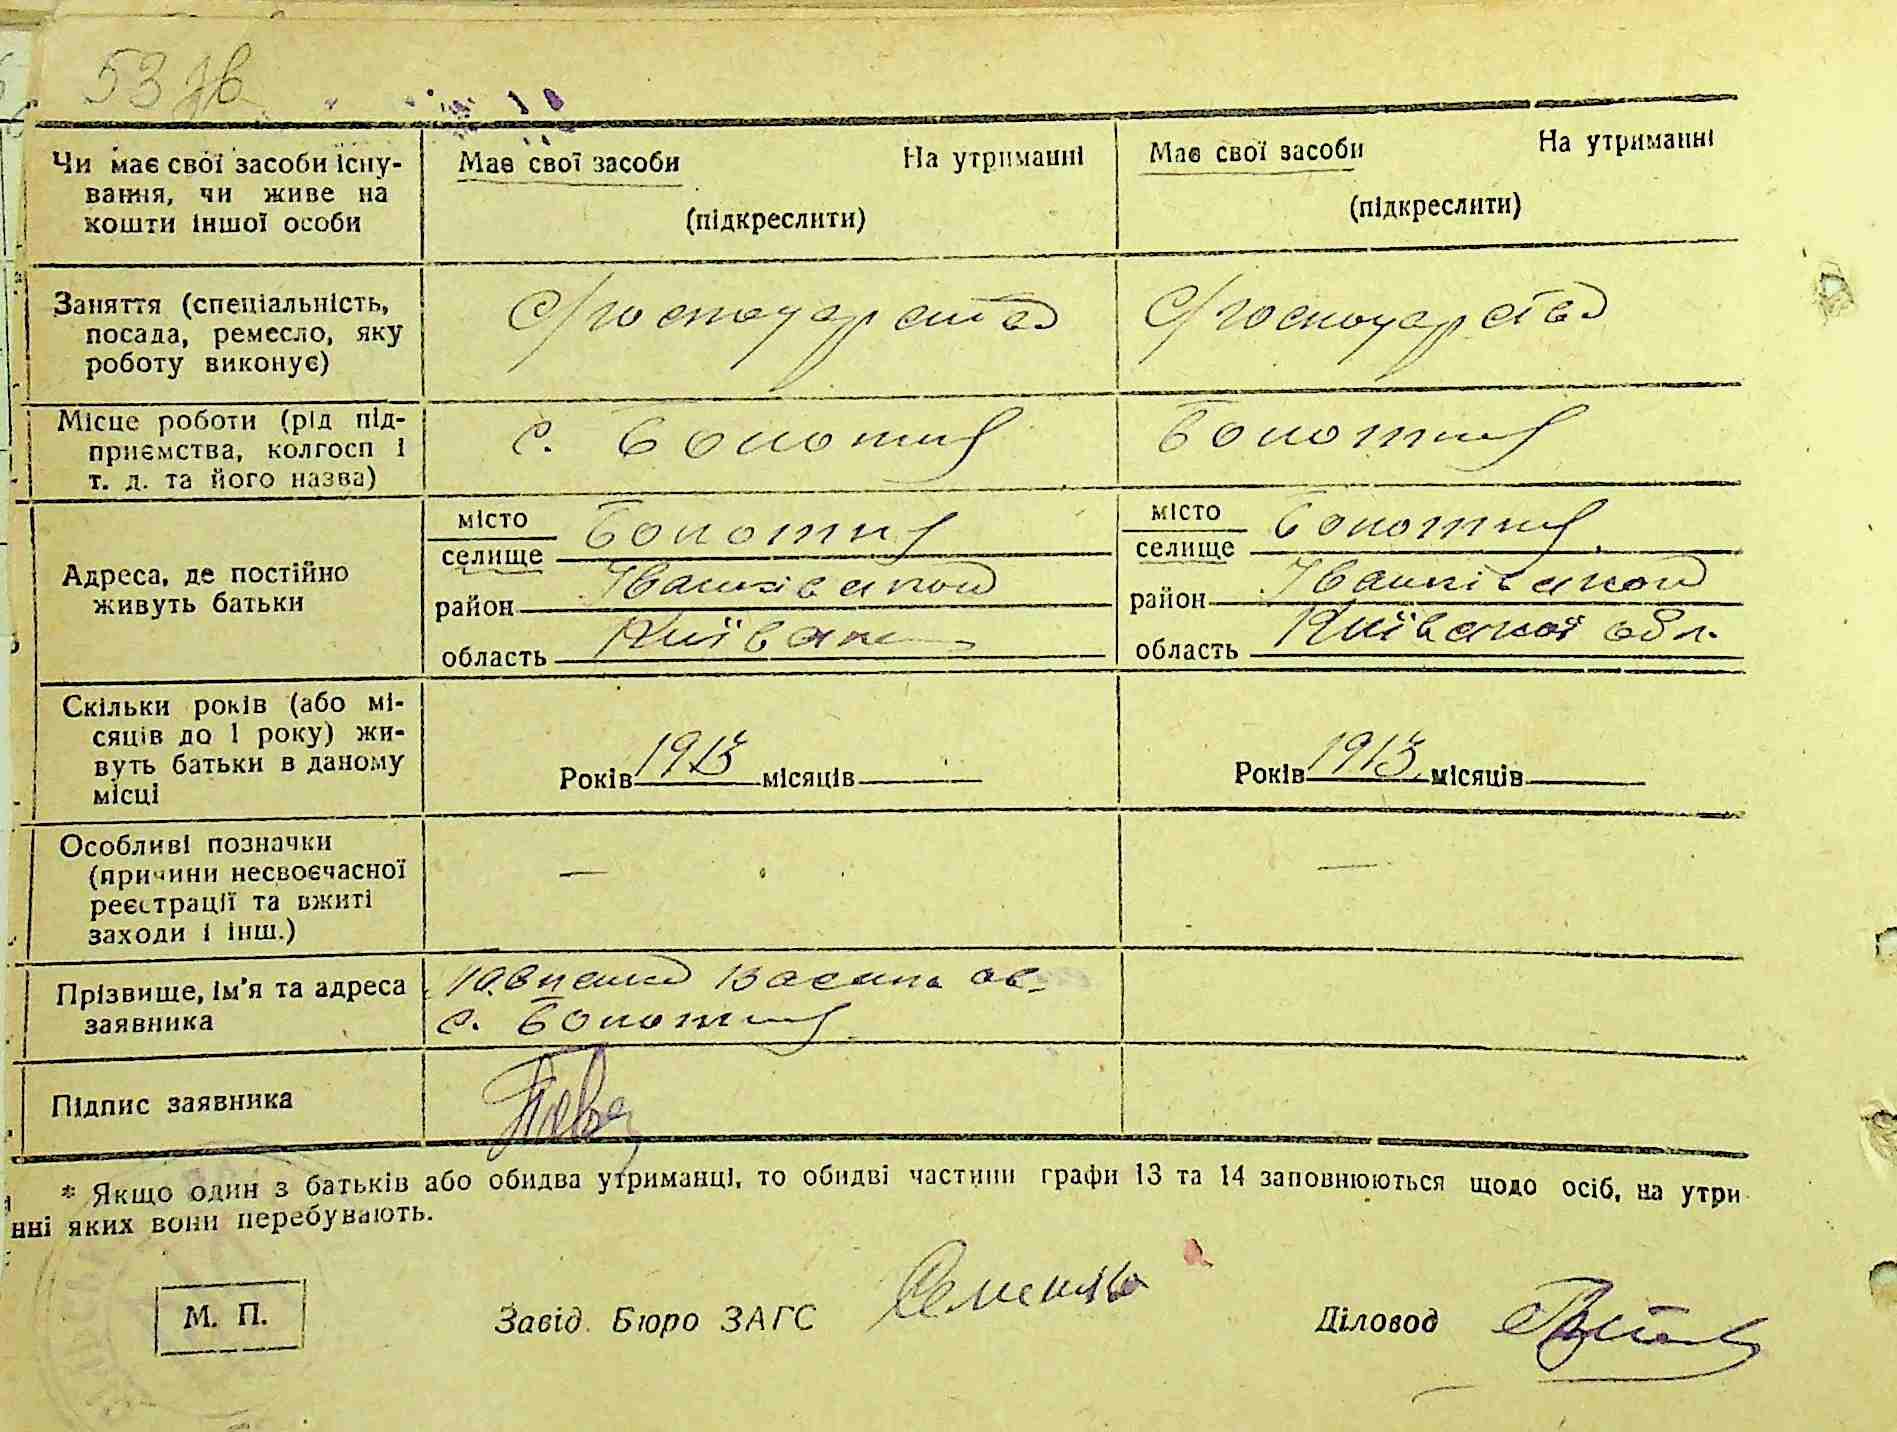 53 зв
Чи має свої засоби існу-
вання, чи живе на
кошти іншої особи
Має свої засоби На утриманні
(підкреслити)
Має свої засоби На утриманні
(підкреслити)
Заняття (спеціальність,
посада, ремесло, яку
роботу виконує)
с/господарство
с/господарство
Місце роботи (рід під-
приємства, колгосп і
т. д. та його назва)
с. Болотня
Болотня
Адреса, де постійно
живуть батьки
місто
селище Болотня
район Іванківський
область Київська
місто
селище Болотня
район Іванківський
область Київської обл.
Скільки років (або мі-
сяців до 1 року) жи-
вуть батьки в даному
місці
Років 1913 місяців
Років 1913 місяців
Особливі позначки
(причини несвоєчасної
реєстрації та вжиті
заходи і інш.)
—
—
Прізвище, ім'я та адреса
заявника
с. Болотня
Підпис заявника
* Якщо один з батьків або обидва утриманці, то обидві частини графи 13 та 14 заповнюються щодо осіб, на утри
нні яких вони перебувають.
М. П.
Завід. Бюро ЗАГС
Діловод